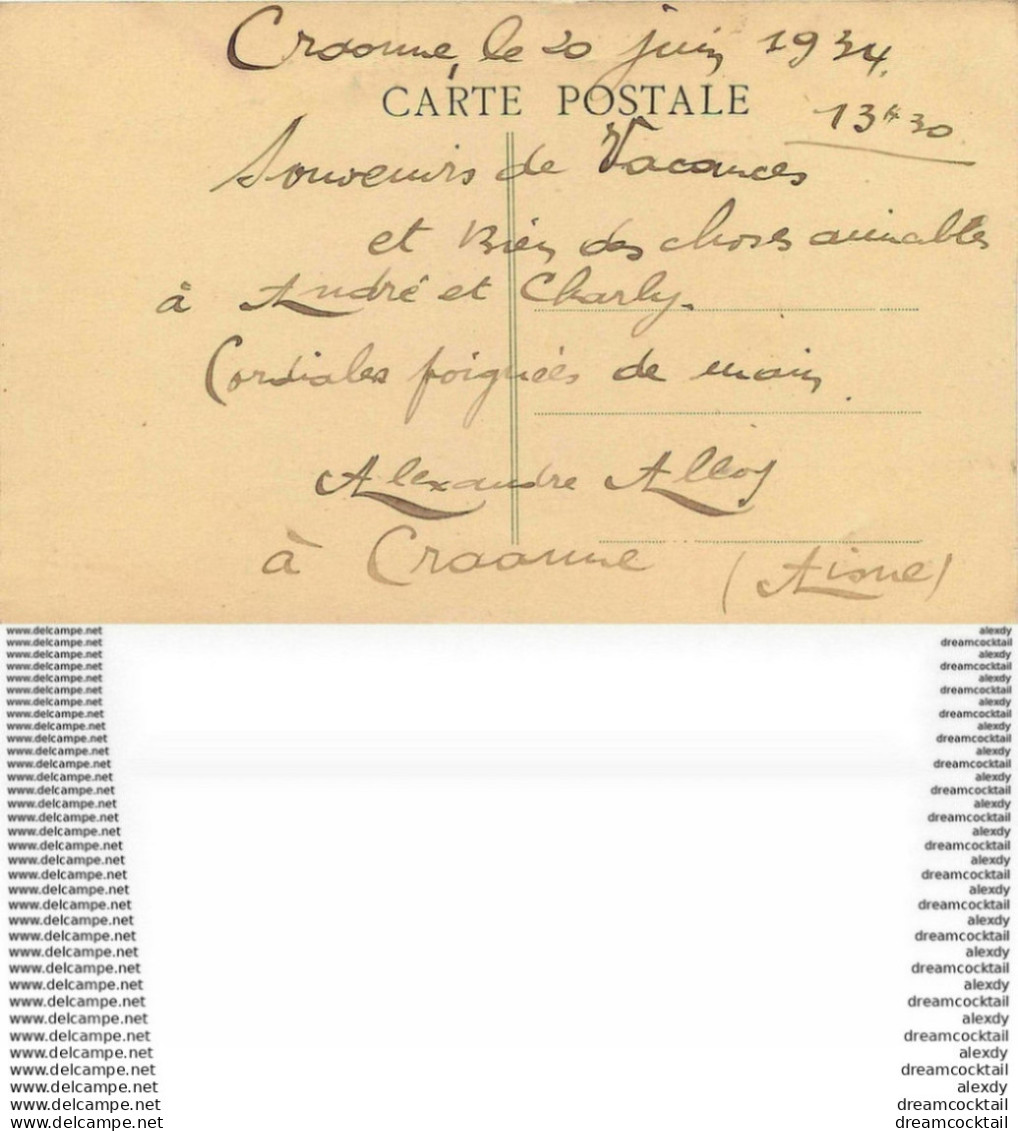 Craonne, le 20 juin 1934.
CARTE POSTALE
13h30
Souvenirs de Vacances
et Bien des choses aimables
à André et Charly.
Cordiales poignées de main
Alexandre
à Craonne (Aisne)
www.delcampe.net alexdy
www.delcampe.net dreamcocktail
www.delcampe.net alexdy
www.delcampe.net dreamcocktail
www.delcampe.net alexdy
www.delcampe.net dreamcocktail
www.delcampe.net alexdy
www.delcampe.net dreamcocktail
www.delcampe.net alexdy
www.delcampe.net dreamcocktail
www.delcampe.net alexdy
www.delcampe.net dreamcocktail
www.delcampe.net alexdy
www.delcampe.net dreamcocktail
www.delcampe.net alexdy
www.delcampe.net dreamcocktail
www.delcampe.net alexdy
www.delcampe.net dreamcocktail
www.delcampe.net alexdy
www.delcampe.net dreamcocktail
www.delcampe.net alexdy
www.delcampe.net dreamcocktail
www.delcampe.net alexdy
www.delcampe.net dreamcocktail
www.delcampe.net alexdy
www.delcampe.net dreamcocktail
www.delcampe.net alexdy
www.delcampe.net dreamcocktail
www.delcampe.net alexdy
www.delcampe.net dreamcocktail
www.delcampe.net alexdy
www.delcampe.net dreamcocktail
www.delcampe.net alexdy
www.delcampe.net dreamcocktail
www.delcampe.net dreamcocktail